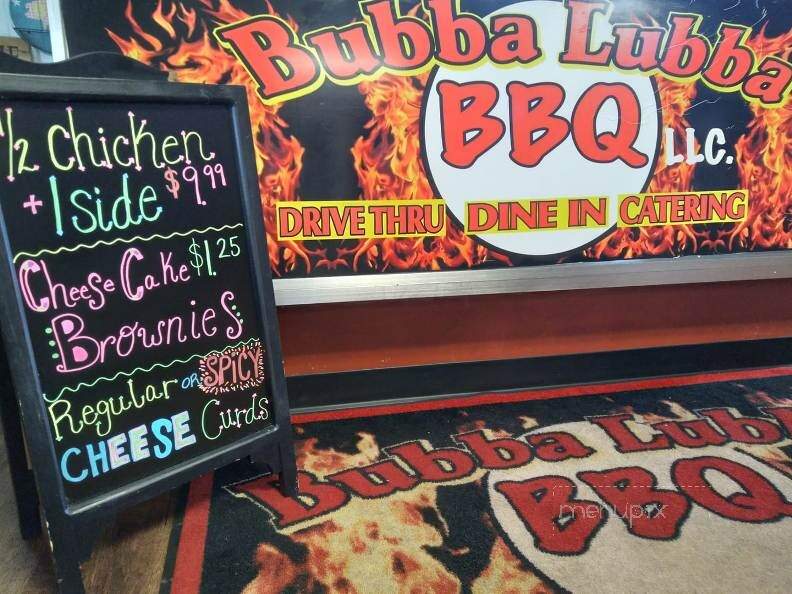 1/2 Chicken
+ 1 side $9.99
Cheese Cake $1.25
Brownies
Regular OR SPICY
CHEESE Curds
Bubba Lubba
BBQ LLC.
DRIVE THRU DINE IN CATERING
Bubba Lubb
BBQ
menupix